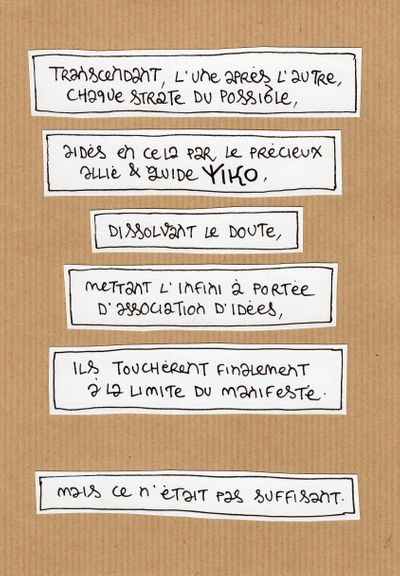 Transcendant, l'une après l'autre,
chaque strate du possible,
aidés en cela par le précieux
allié & guide YIKO,
dissolvant le doute,
mettant l'infini à portée
d'association d'idées,
ils touchèrent finalement
à la limite du manifeste.
mais ce n'était pas suffisant.